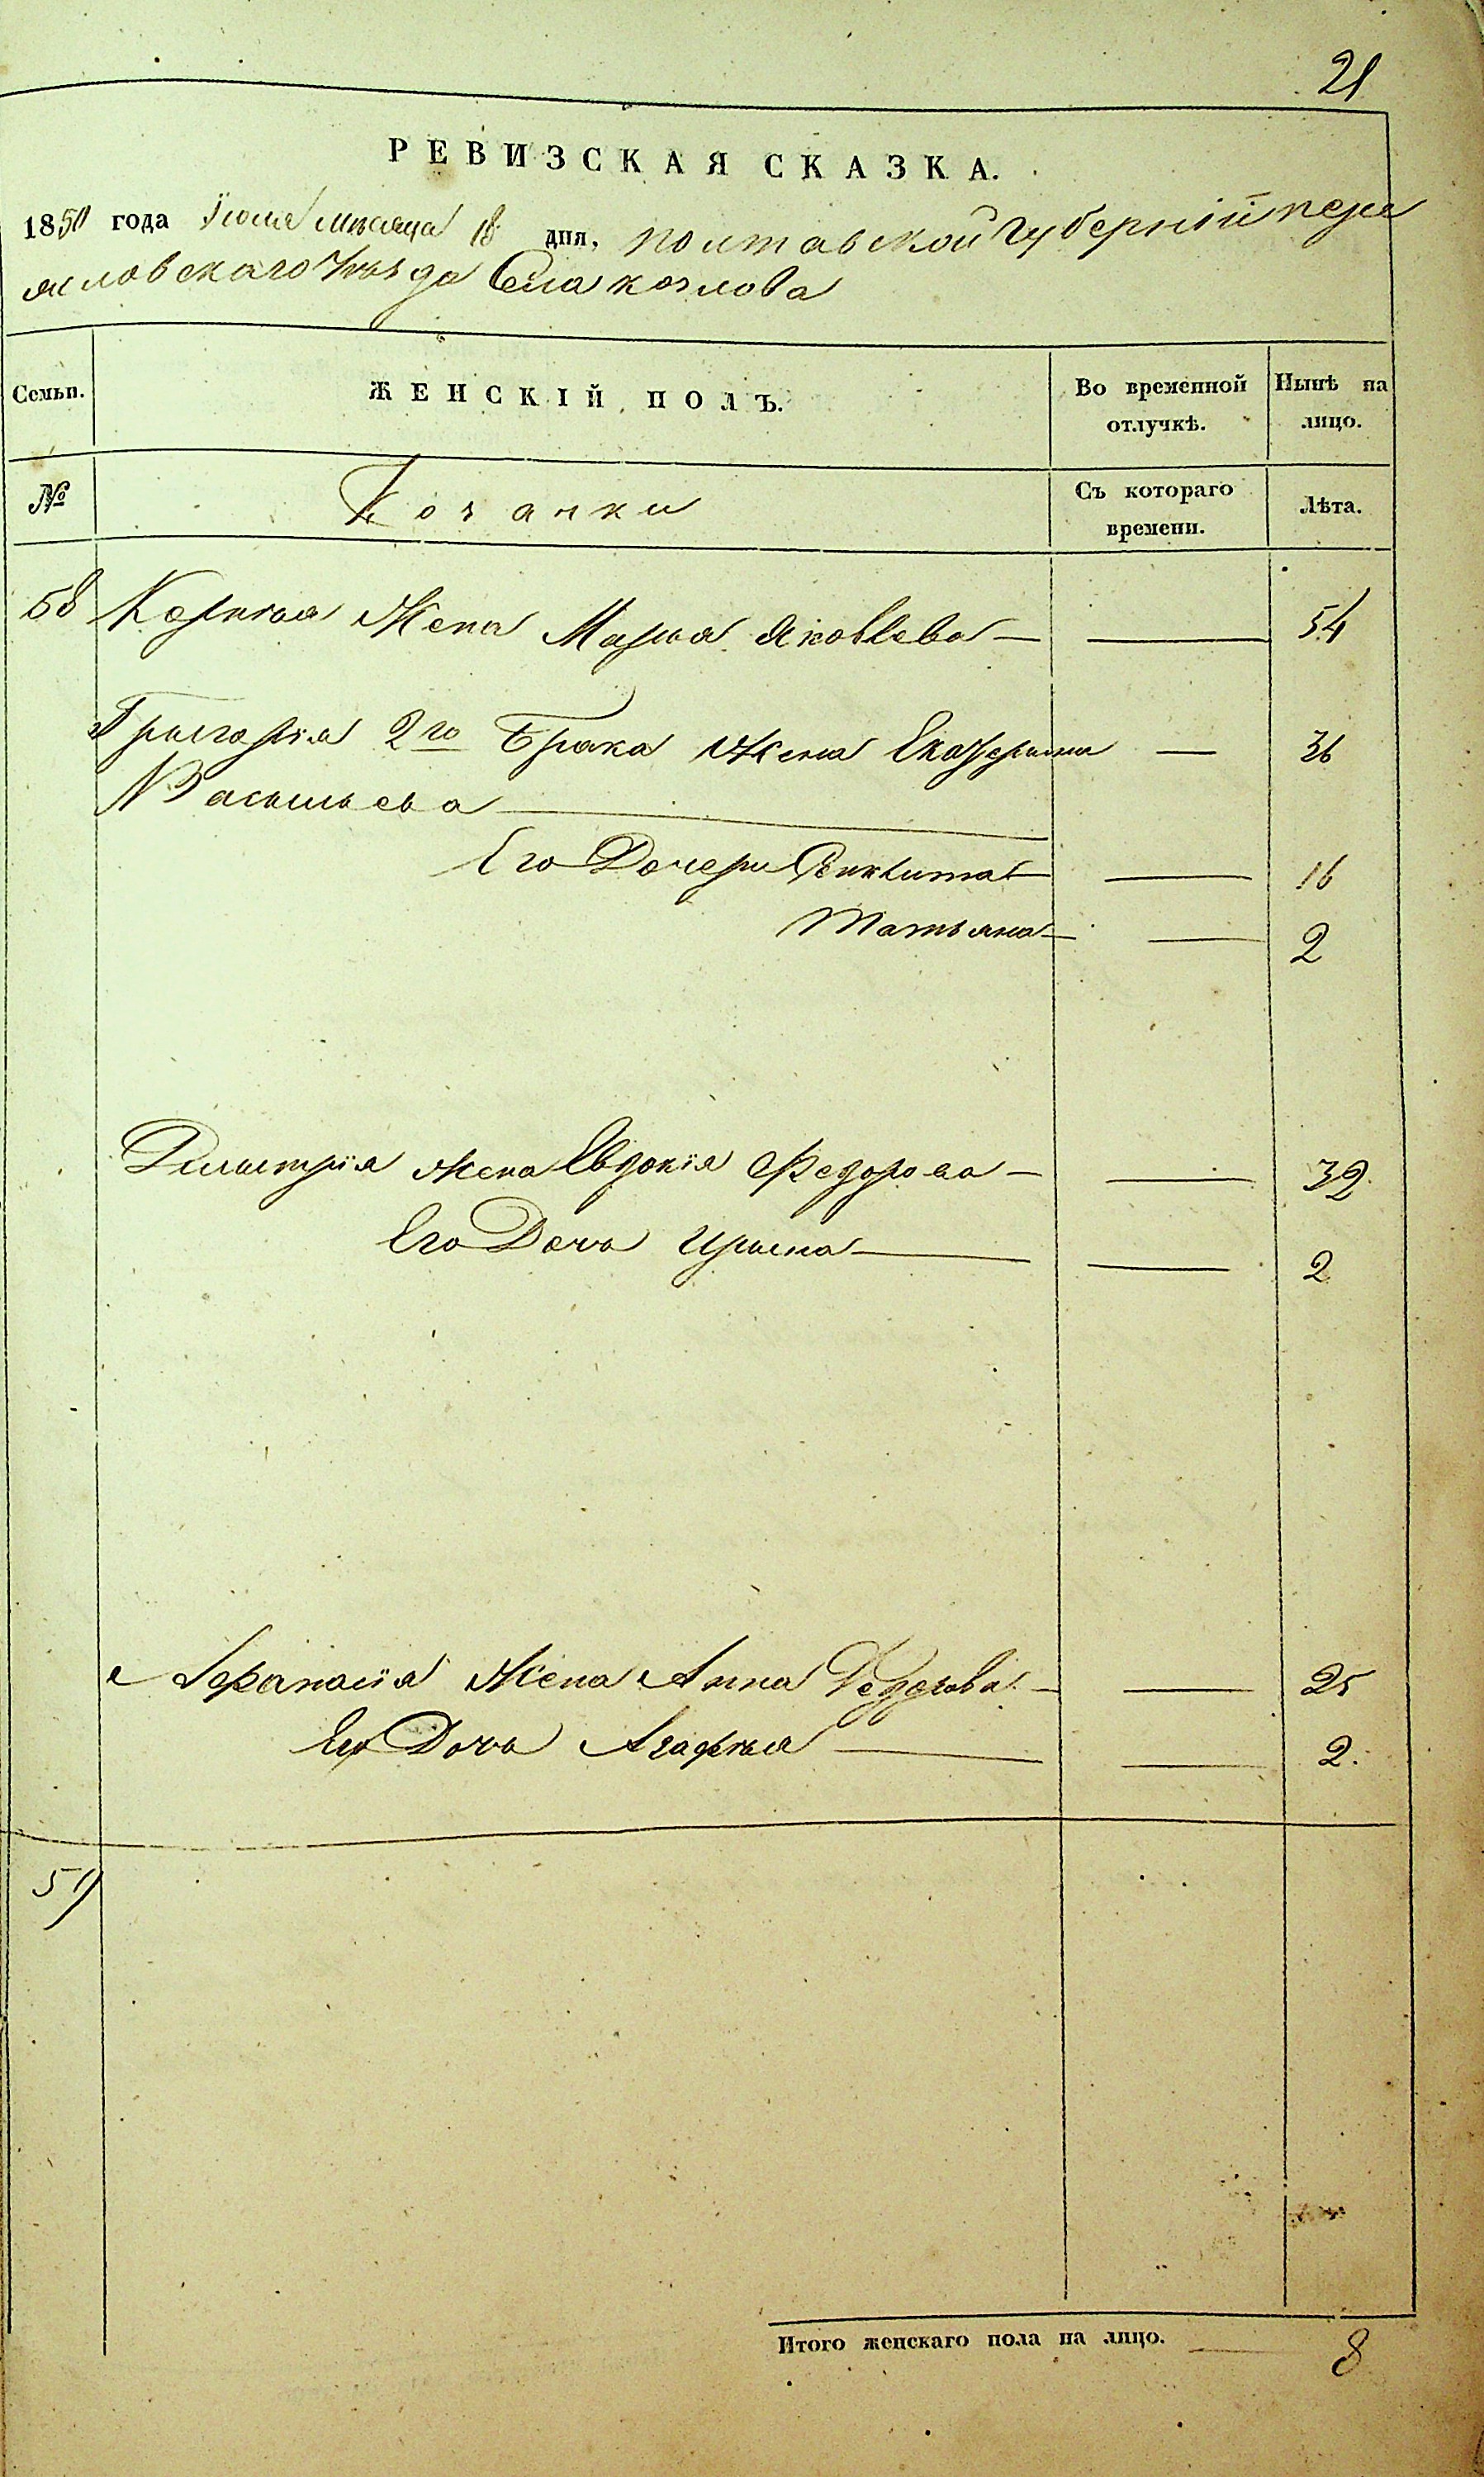 21
РЕВИЗСКАЯ СКАЗКА.
1850 года Іюля месяца 18 дня, полтавской губерніи пере
яславскаго уезда Села козлова
Семьи.
ЖЕНСКІЙ ПОЛЪ.
Во временной отлучкѣ.
Нынѣ на лицо.
№
Козачки
Съ котораго времени.
Лѣта.
58 Корнѣя Жена Марья Яковлева — — 54
Григорія 2го Брака Жена Екатерина — 36
Васильева
Его Дочери — 16
Татьяна — — 2
Димитрія жена Евдокія Федорова — — 32
Его Дочь Ирина — — 2
Афанасія Жена Анна Федорова — — 25
Его Дочь Агафья — — 2.
59
Итого женскаго пола на лицо. — 8